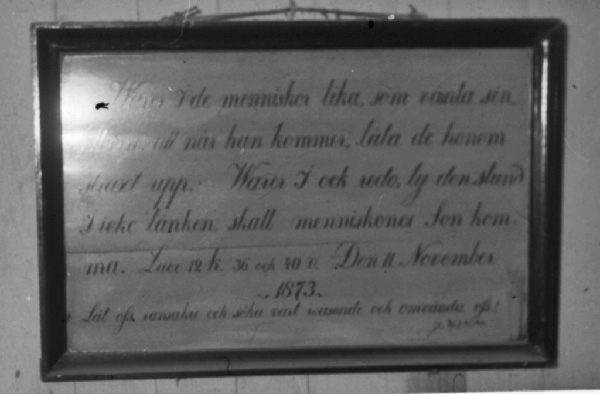 Warer I de menniskor lika, som vänta sin
att när han kommer, låta de honom
straxt upp. Warer I ock redo, ty den stund
I icke tänken, skall menniskones Son kom-
ma. Luce 12 k. 36 och 40 v. Den 11 November
1873.
Låt oss ransaka och söka vårt wäsende och omvända oss!